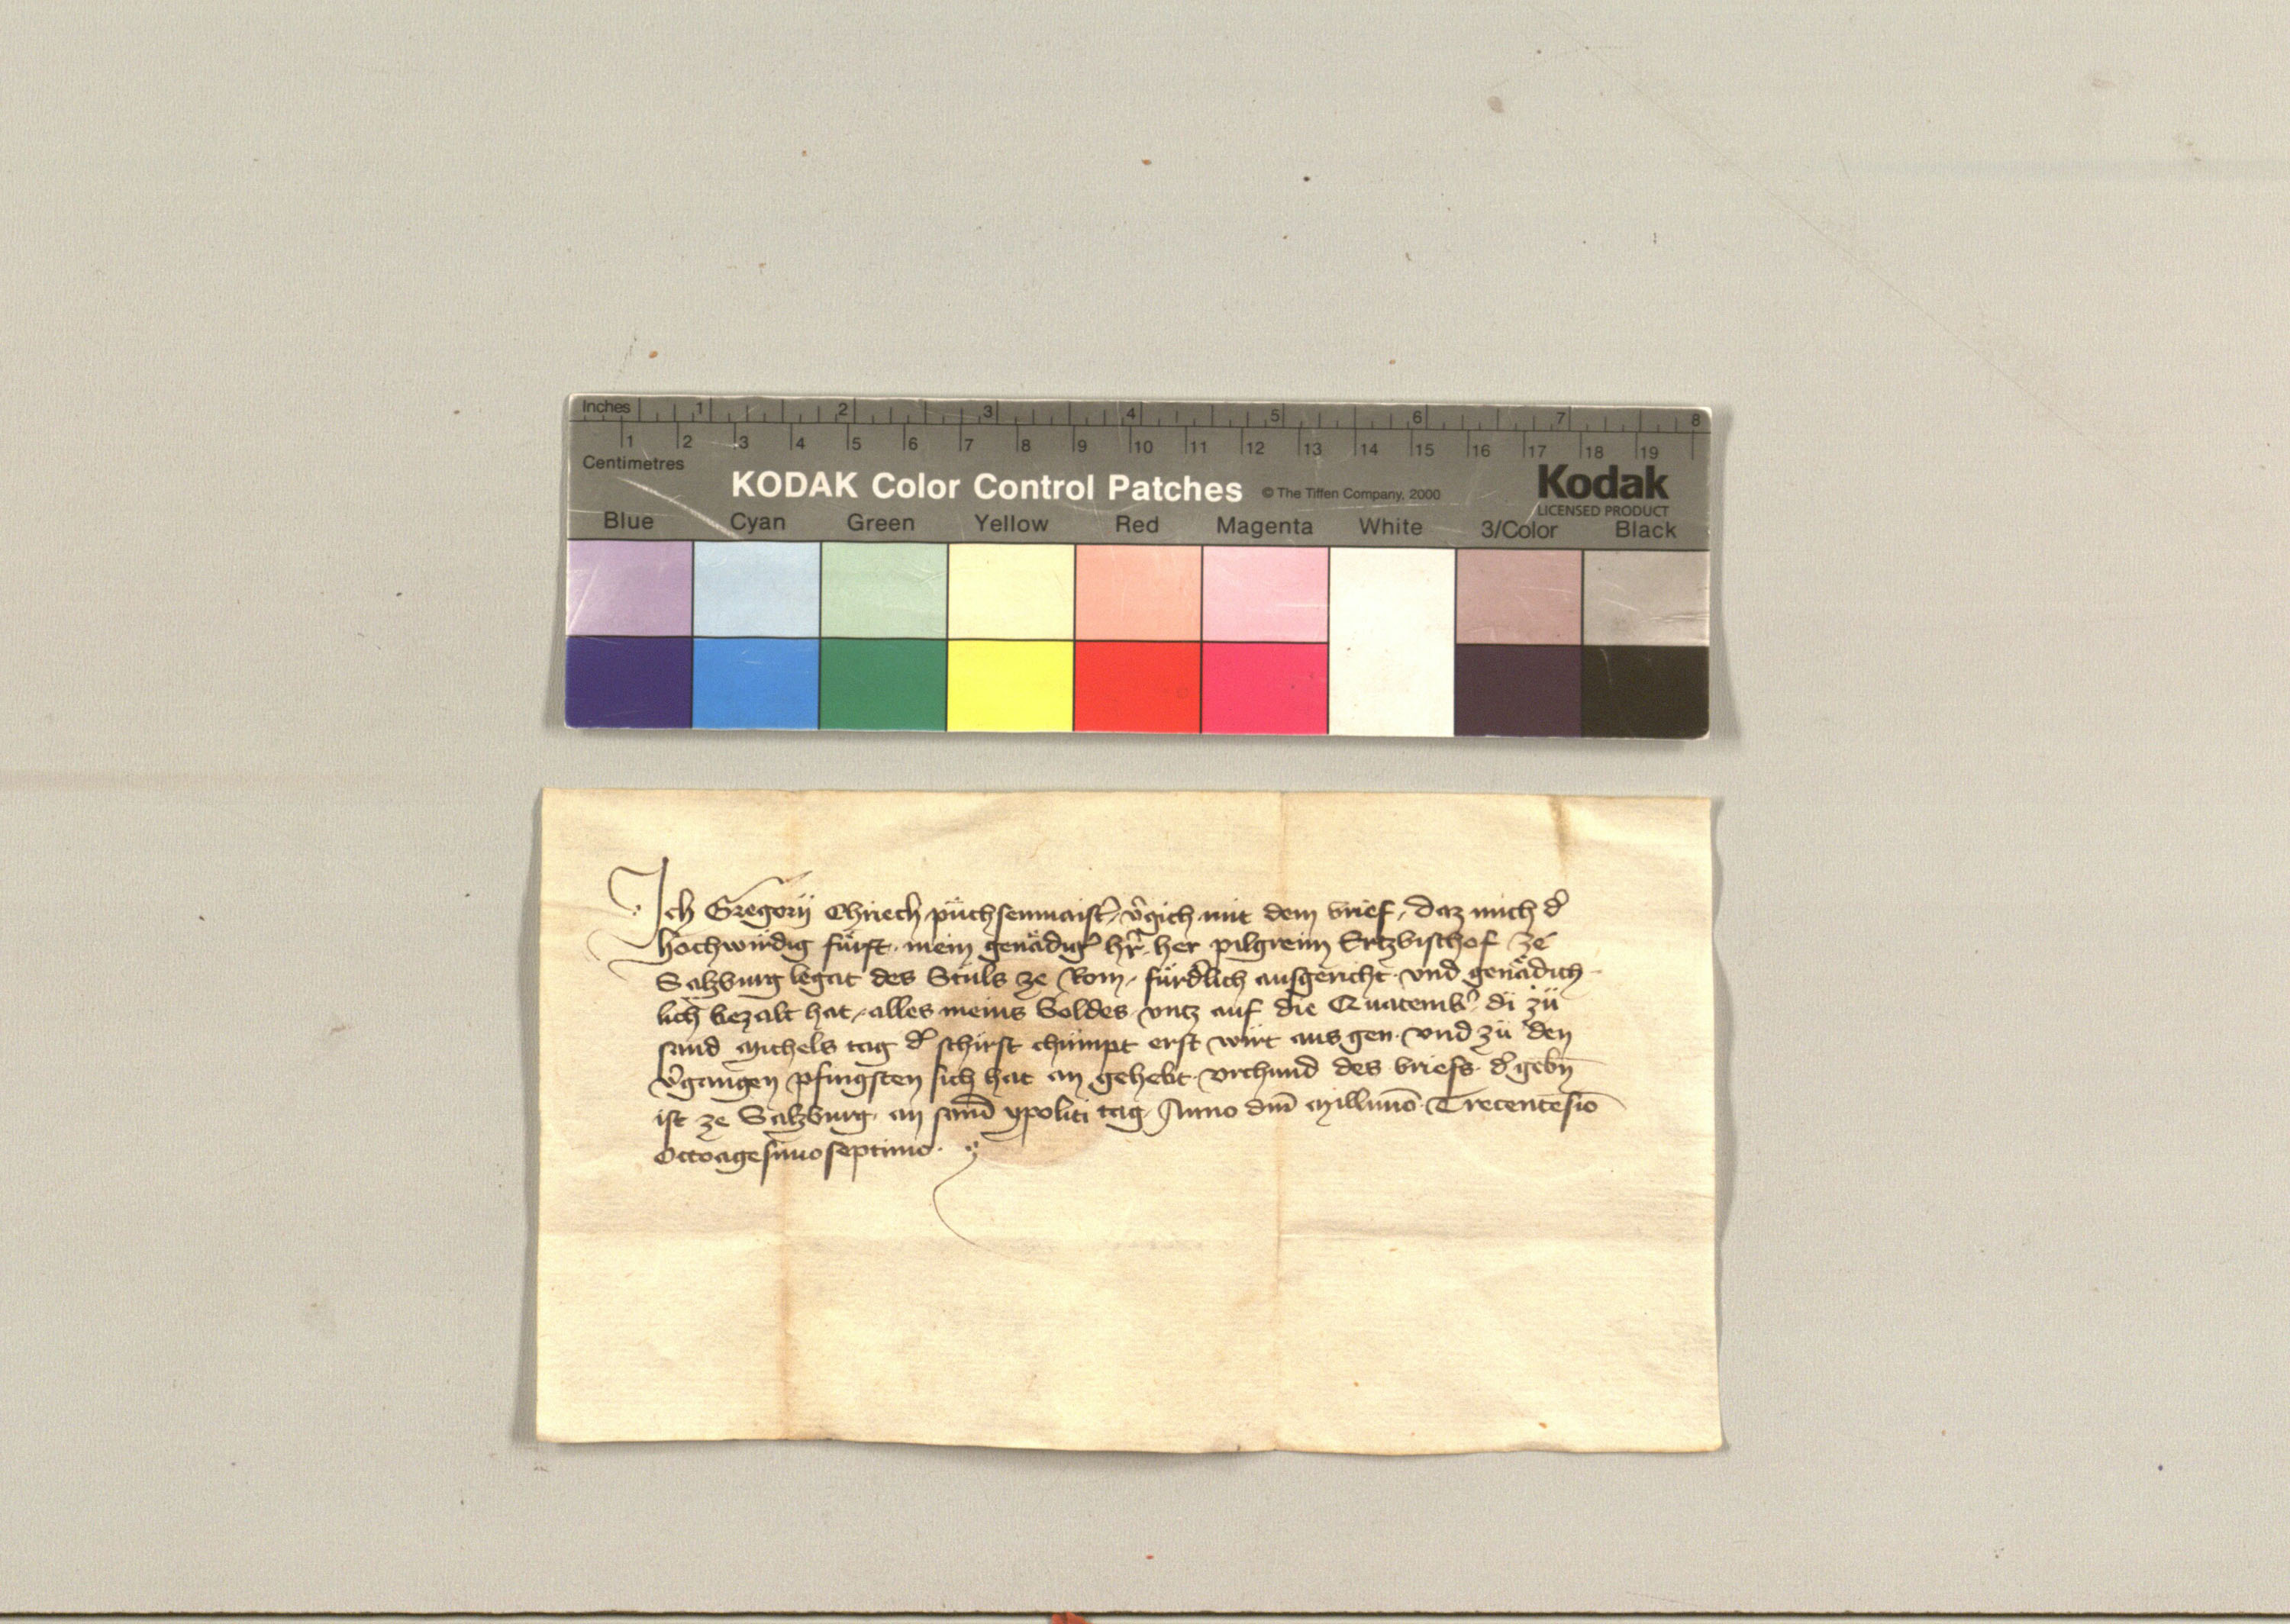 Inches 1 2 3 4 5 6 7 8
1 2 3 4 5 6 7 8 9 10 11 12 13 14 15 16 17 18 19
Centimetres
KODAK Color Control Patches © The Tiffen Company, 2000 Kodak
LICENSED PRODUCT
Blue Cyan Green Yellow Red Magenta White 3/Color Black
Ich Gregorii Chriech püchsenmaist̄ v̄gich mit dem brief, daz mich d̄
hochwirdig fürst mein genädiḡ hr̄ her pilgreim Ertzbischof ze
Salzburg legat des Stuls ze Rom, fürd̄lich ausgericht und genädich
lich bezalt hat, alles meins Soldes untz auf die Quatemb̄ di zü
sand Michels tag d̄ schirst chümpt erst wirt aus gen und zü den
v̄gangen pfingsten sich hat an gehebt urchund des briefs d̄ gebn̄
ist ze Salzburg an sand ypoliti tag Anno dm̄ Millimō Trecentesīo
Octoagesimo septimo